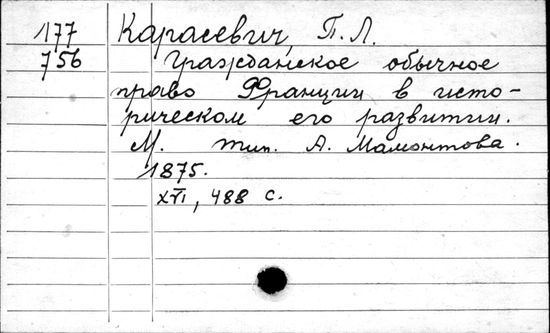 177 Карасевич, П. Л.
756 Гражданское обычное
право Франции в исто-
рическом его развитии.
М. тип. А. Мамонтова.
1875.
XVI, 488 с.